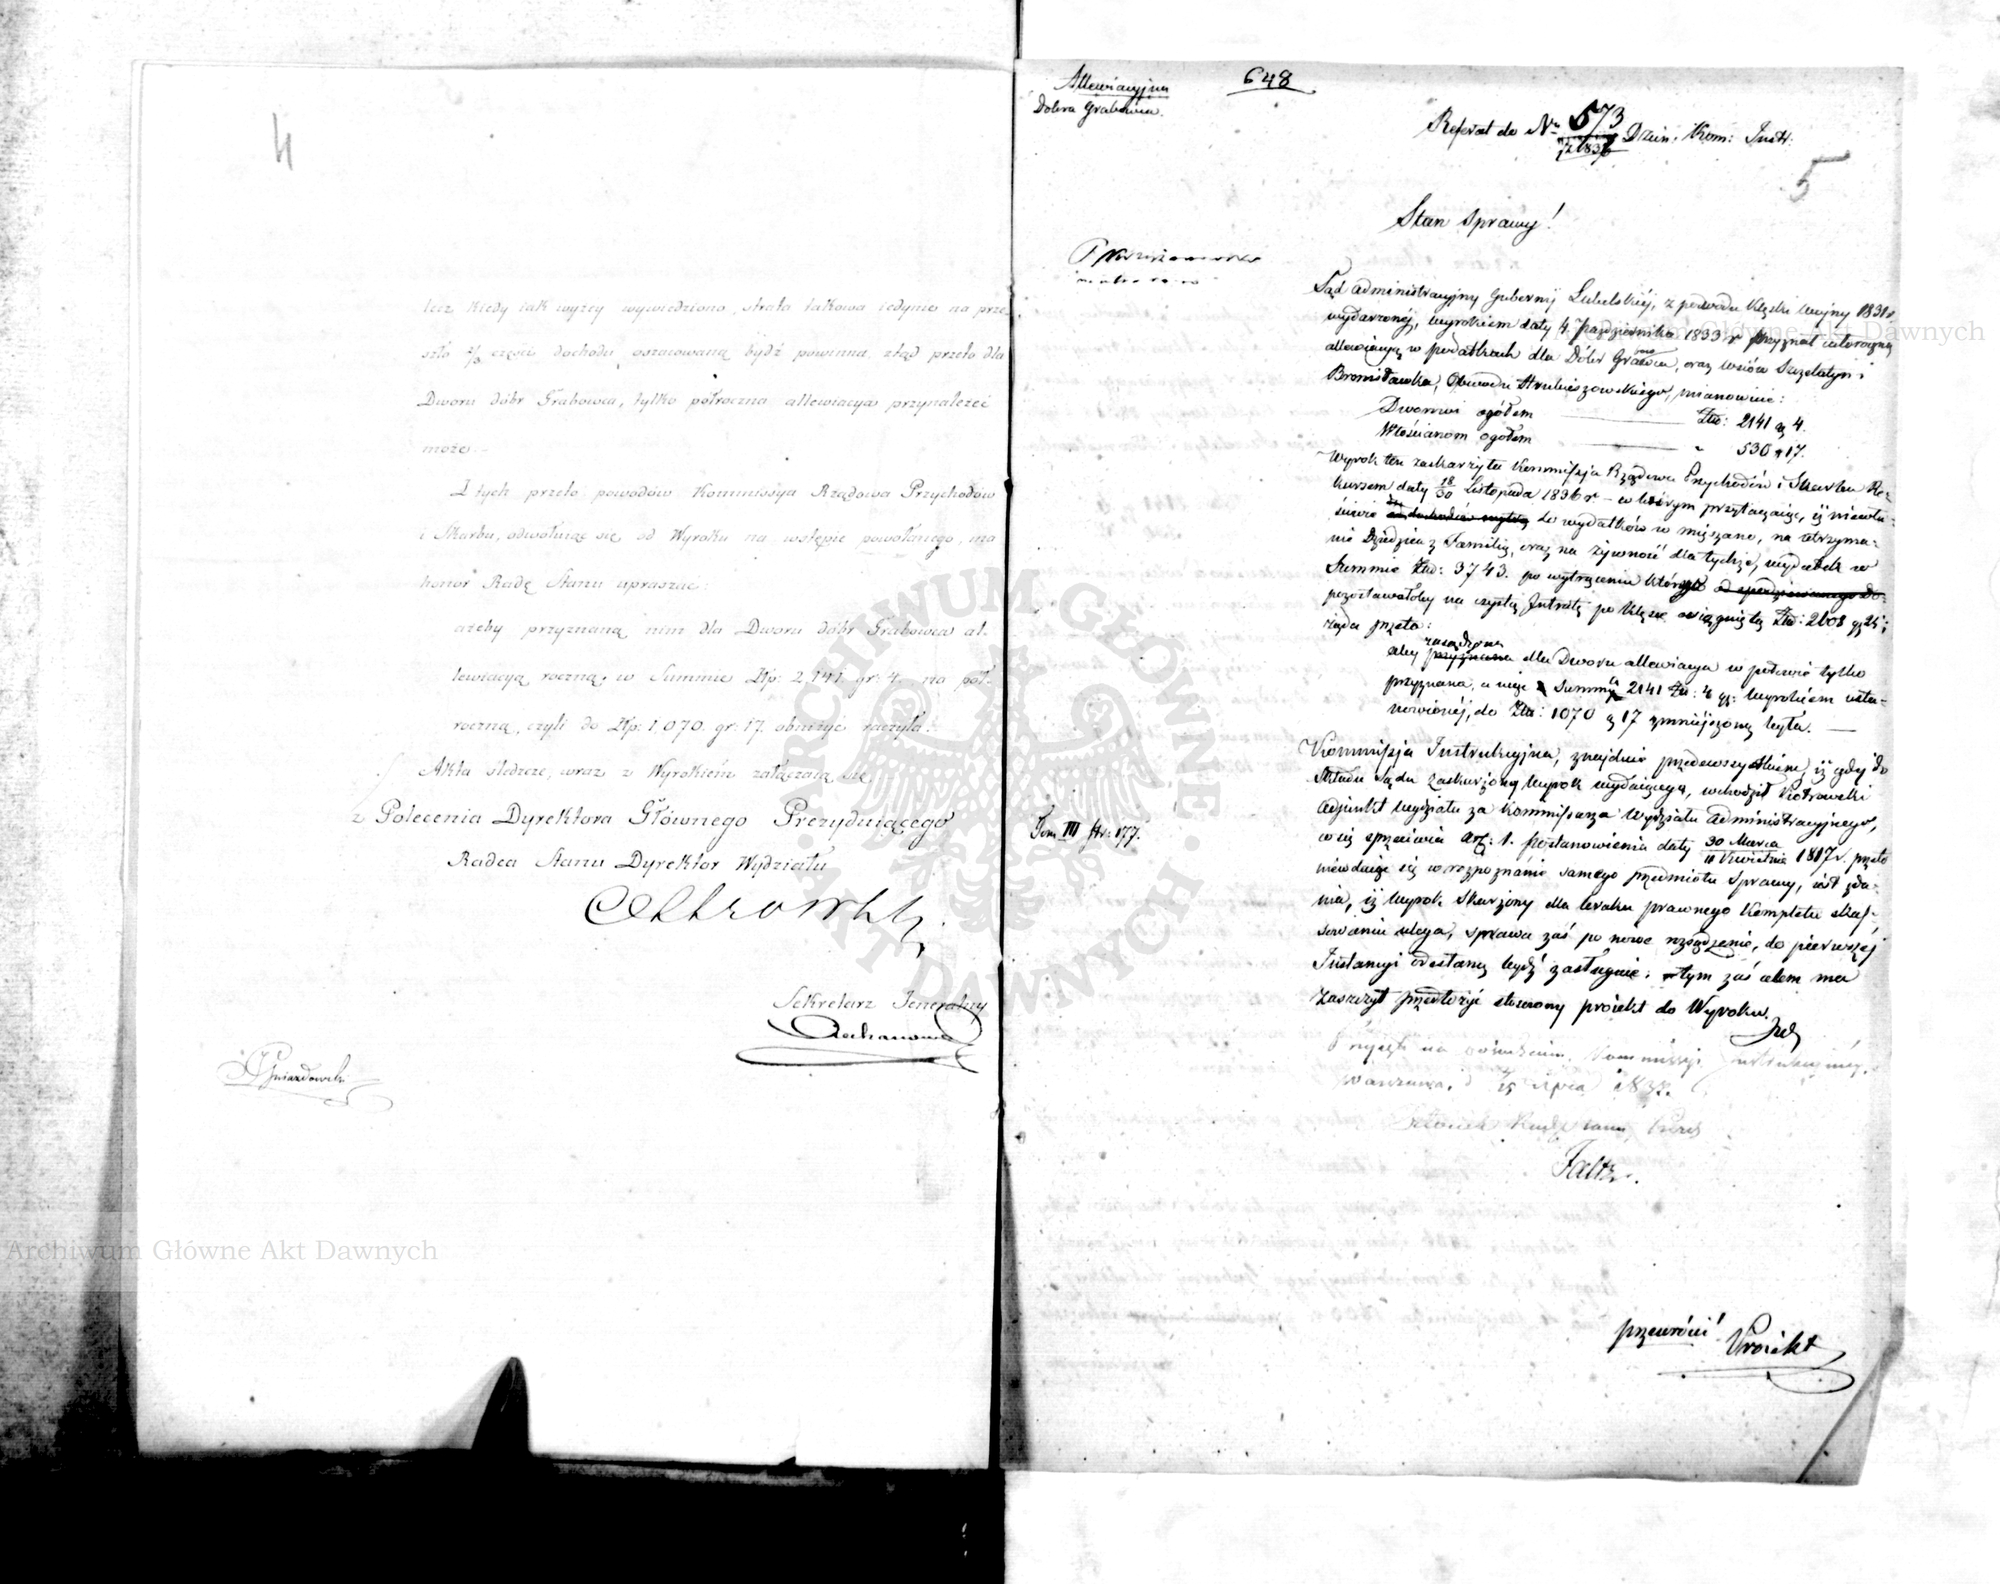 4
lecz kiedy iak wyżey wywiedziono, strata takowa iedynie na prze
szło 1/3 części dochodu oszacowaną bydź powinna, ztąd przeto dla
Dworu dóbr Grabowca, tylko półroczna allewiacya przynależeć
może.
Z tych przeto powodów Kommissya Rządowa Przychodów
i Skarbu, odwołuiąc się od Wyroku na wstępie powołanego, ma
honor Radę Stanu upraszać:
ażeby przyznaną nim dla Dworu dóbr Grabowca al-
lewiacyą roczną, w Summie Złp: 2,141. gr: 4. na pół-
roczną, czyli do Złp: 1,070. gr: 17. obniżyć raczyła.
Akta śledcze, wraz z Wyrokiem załączaią się.
z Polecenia Dyrektora Głównego Prezyduiącego
Radca Stanu Dyrektor Wydziału
Sekretarz Jeneralny
Gniazdowski
Allewiacyjna
Dobra Grabowca.
648
Referat do Nr 573 Dzien. Kom: Instr.
5
Stan Sprawy!
Sąd Administracyjny Gubernij Lubelskiéj, z powodu klęski wojny 1831 r
wydarzonéj, wyrokiem daty 4. Października 1833 r przyznał całoroczną
allewiacyą w podatkach dla Dóbr Grabowca, oraz wsiów Szczelatyn i
Bronisławka, Obwodu Hrubieszowskiego, mianowicie:
Dworowi ogółem Złp: 2141 g 4.
Włościanom ogółem " 530 g 17.
Wyrok ten zaskarżyła Kommissja Rządowa Przychodów i Skarbu Re-
kursem daty 18/30 Listopada 1836 r – w którym przytaczaiąc, iż niewła-
ściwie do wydatków w mięszano, na utrzyma-
nie Dziedzica z Familią, oraz na żywność dla tychże, wydatek w
Summie Złp: 3743. po wytrąceniu
pozostawałoby na czystą Intratę po klęsce osiągniętą Złp: 2608 g 25;
żąda przeto:
aby zasądzona dla Dworu allewiacya w połowie tylko
przyznana, a więc z Summy 2141 Zł: 4 gr: wyrokiem usta-
nowionéj, do Złp: 1070 g 17 zmniejszoną była. —
Kommissja Instrukcyjna, znajduie przedewszystkiem, iż gdy do
Składu Sądu zaskarżony wyrok wydaiącego, wchodził Piotrowski
Adjunkt wydziału za Kommissarza Wydziału Administracyjnego,
co się sprzeciwia Art: 1. Postanowienia daty 30 Marca / 11 Kwietnia 1817 r. przeto
Tom III str: 177.
niewdaiąc się w rozpoznanie samego przedmiotu sprawy, iest zda-
nia, iż wyrok skarżony dla braku prawnego kompletu skas-
sowaniu ulega, sprawa zaś po nowe rozsądzenie, do pierwszéj
Instancyi odesłaną bydź zasługuie; w tym zaś celem ma
zaszczyt przedłożyć stosowny projekt do Wyroku.
Przyjęty na posiedzeniu Kommissyi Instrukcyjnéj.
Warszawa, d 15 Lipca 1837.
Członek Rady Stanu, Prezes
Faltz.
przewróć! Projekt
Archiwum Główne Akt Dawnych
Archiwum Główne Akt Dawnych
ARCHIWUM GŁÓWNE · AKT DAWNYCH ·